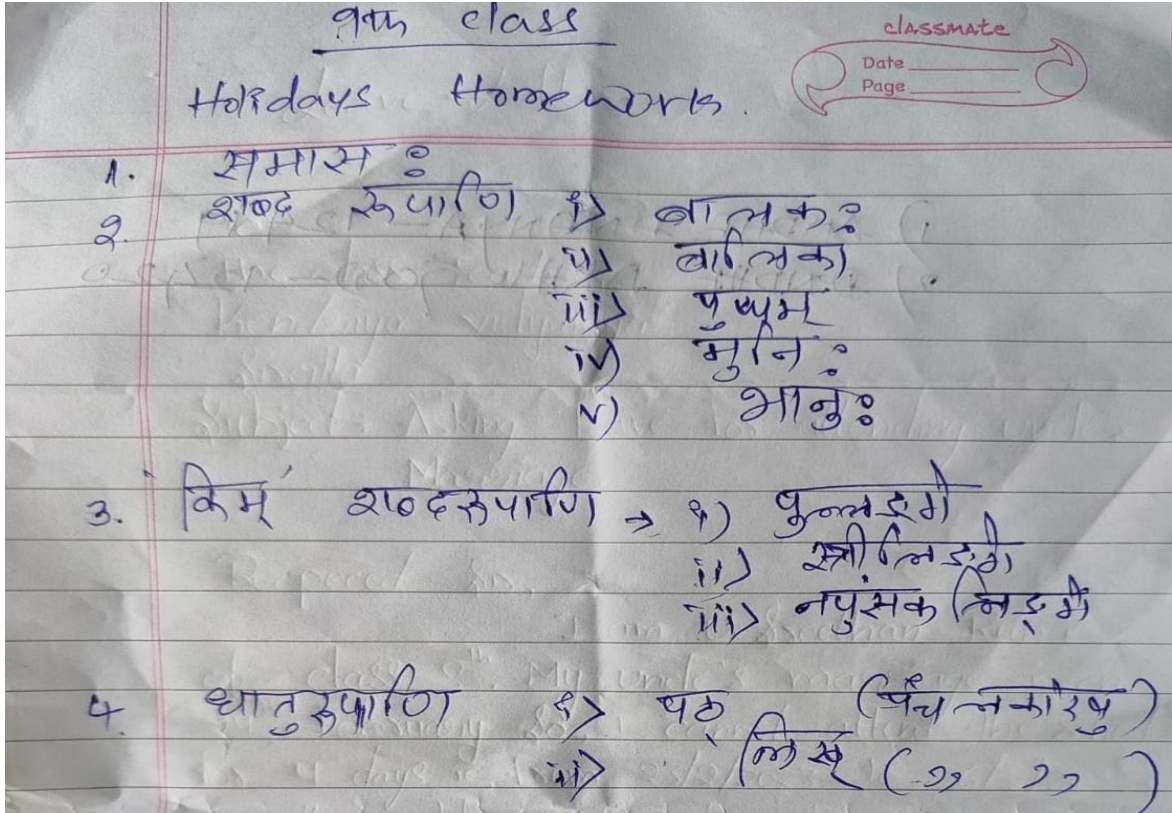 9th class
classmate
Date
Page
Holidays Homework.
1. समास :
2. शब्द रूपाणि i) बालक:
ii) बालिका
iii) पुष्पम्
iv) मुनि :
v) भानु:
3. किम् शब्दरूपाणि → i) पुल्लिङ्गे
ii) स्त्रीलिङ्गे
iii) नपुंसकलिङ्गे
4. धातुरूपाणि i) पठ् (पंच लकारेषु)
ii) लिख् ( ,, ,, )